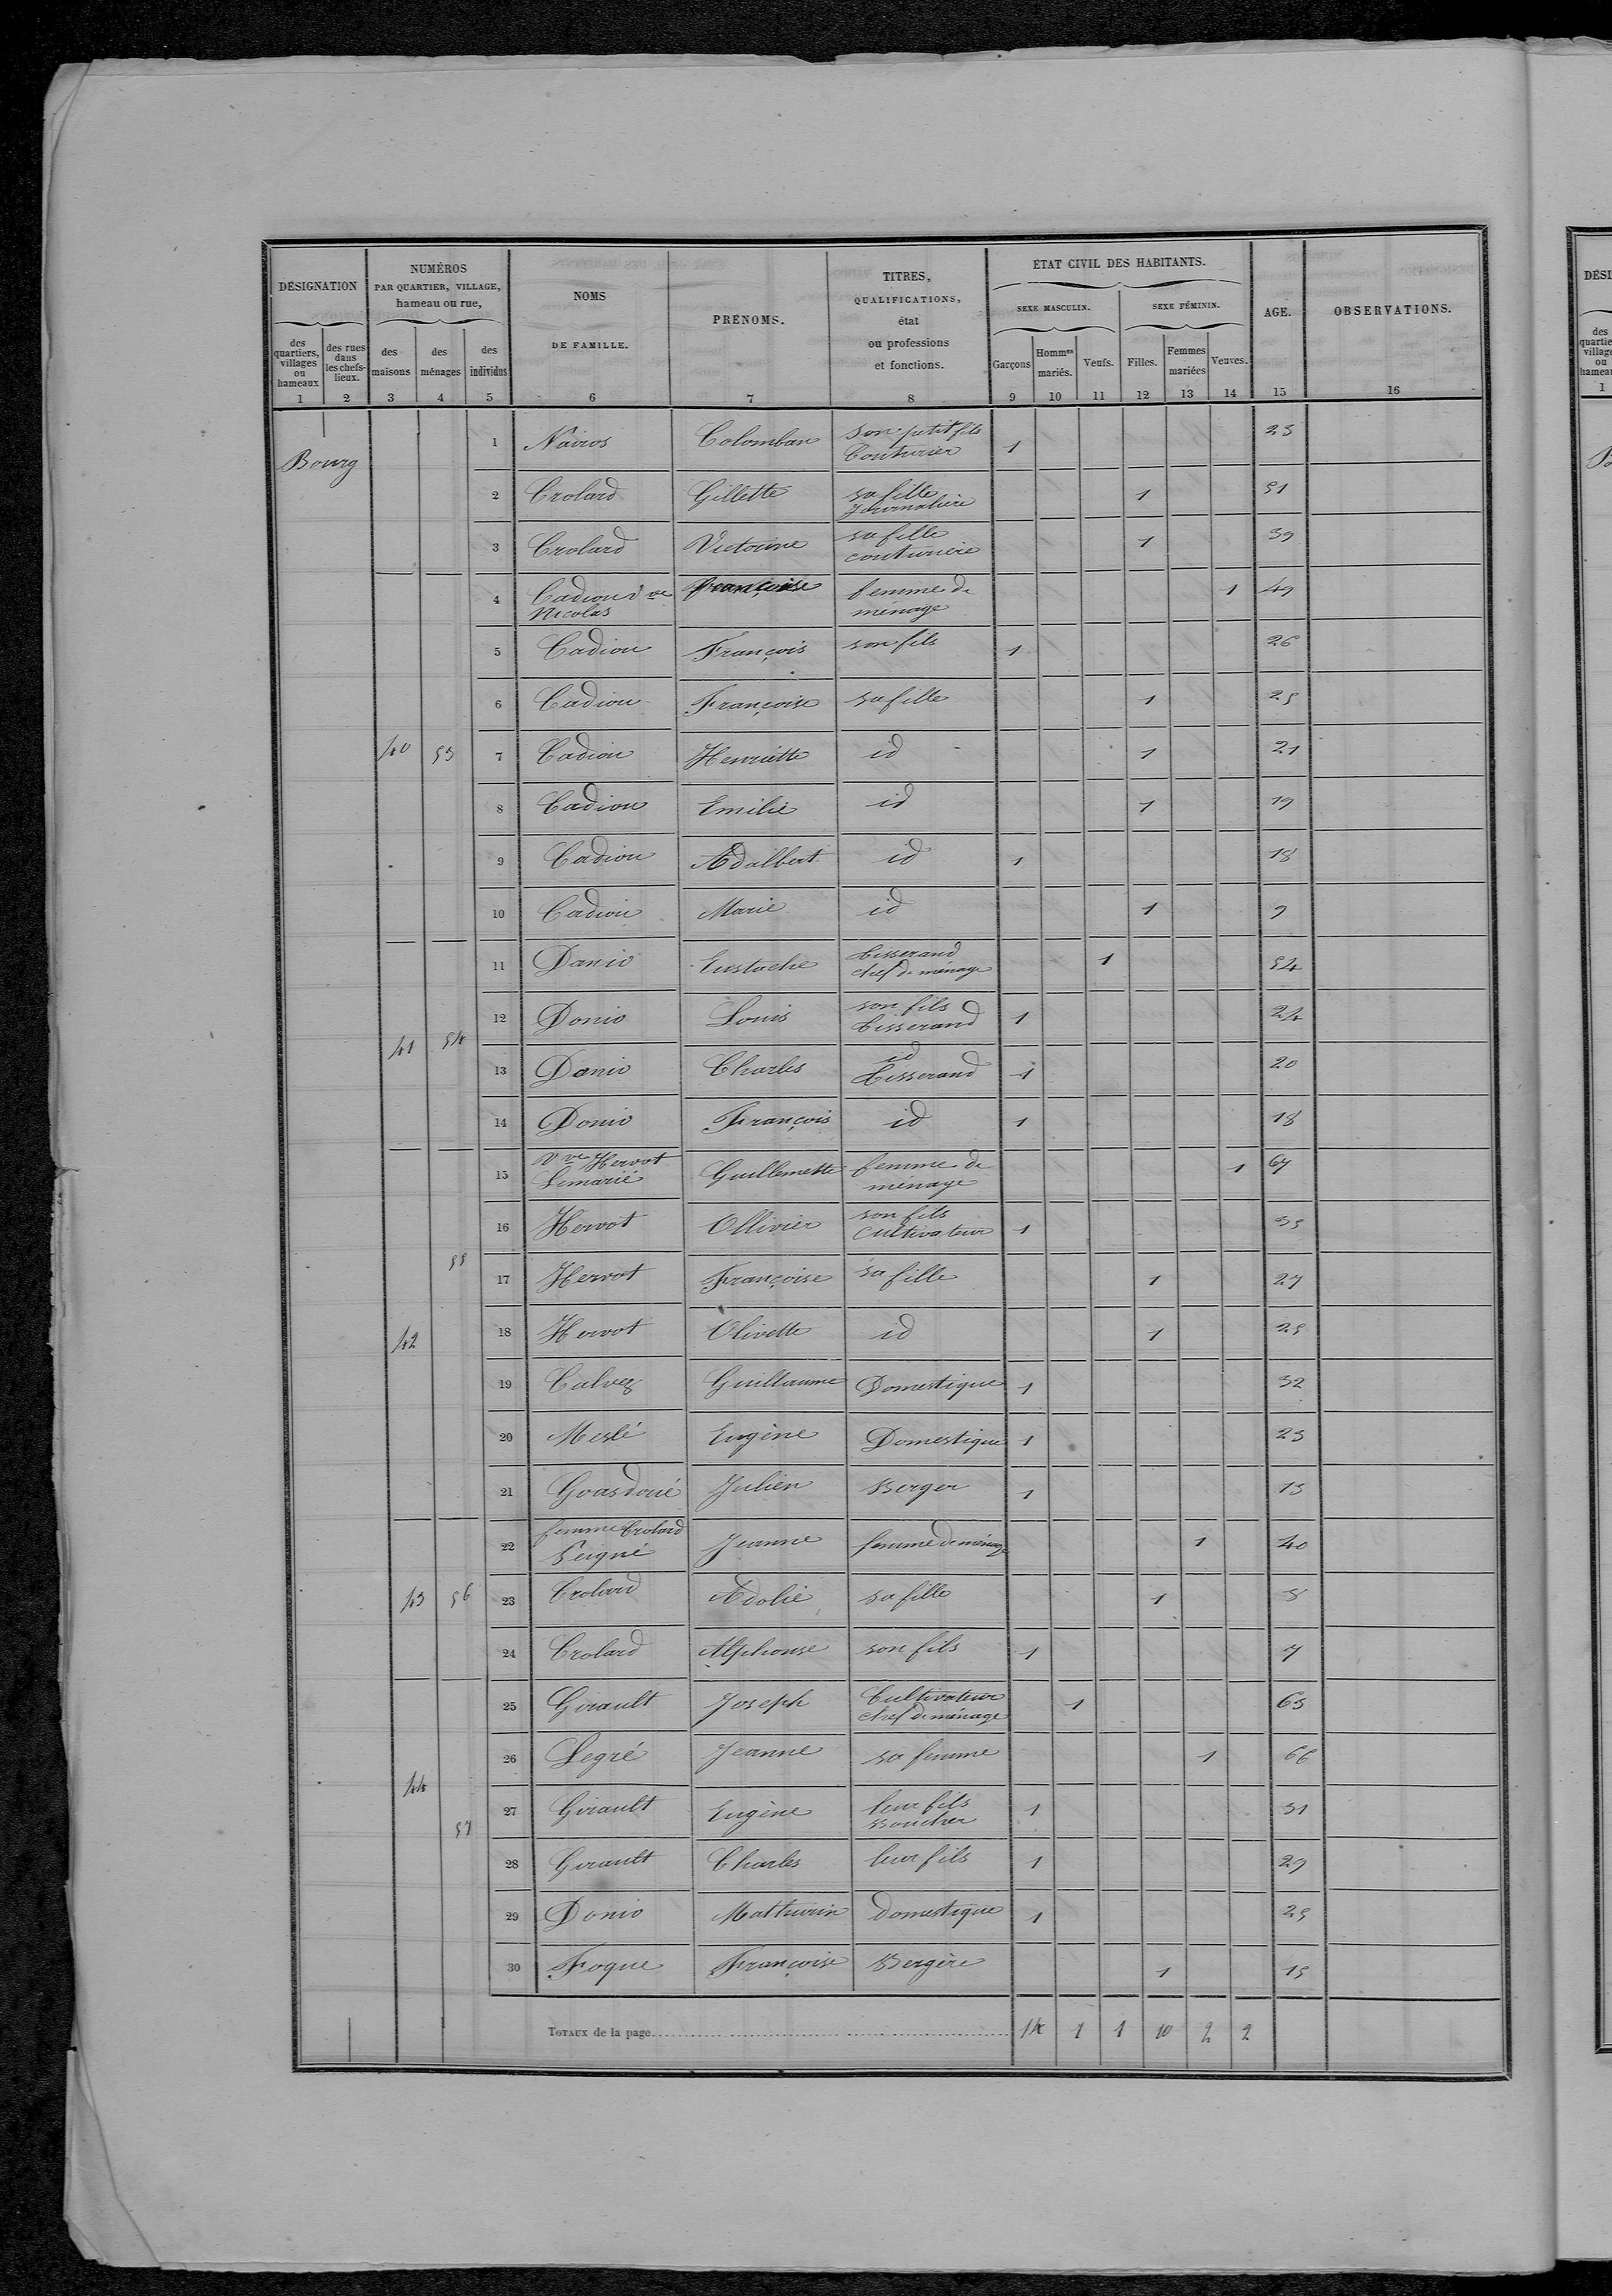 DÉSIGNATION
NUMÉROS
PAR QUARTIER, VILLAGE,
hameau ou rue,
NOMS
DE FAMILLE.
PRÉNOMS.
TITRES,
QUALIFICATIONS,
état
ou professions
et fonctions.
ÉTAT CIVIL DES HABITANTS.
SEXE MASCULIN.
SEXE FÉMININ.
AGE.
OBSERVATIONS.
des quartiers, villages ou hameaux
des rues dans les chefs-lieux.
des maisons
des ménages
des individus
Garçons
Hommes mariés.
Veufs.
Filles.
Femmes mariées
Veuves.
1 2 3 4 5 6 7 8 9 10 11 12 13 14 15 16
Bourg
1 Colomban son petit fils 1
Couturier
2 Crolard Gillette sa fille 1 51
Journalière
3 Crolard Victorine sa fille 1 39
couturière
4 Cadiou Vve Françoise femme de 1 49
Nicolas ménage
5 Cadiou François son fils 1 26
6 Cadiou Françoise sa fille 1 25
40 53 7 Cadiou Henriette id 1 21
8 Cadiou Emilie id 1 19
9 Cadiou Adalbert id 1 18
10 Cadiou Marie id 1 9
11 Danio Eustache tisserand 1 54
chef de ménage
12 Donio Louis son fils 1 24
tisserand
41 54
13 Danio Charles id 1 20
tisserand
14 Donio François id 1 18
15 Vve Hervot Guillemette femme de 1 67
Lemarié ménage
16 Hervot Ollivier son fils 1 35
cultivateur
55
17 Hervot Françoise sa fille 1 27
42 18 Hervot Olivette id 1 25
19 Calvez Guillaume Domestique 1 32
20 Meslé Eugène Domestique 1 23
21 Goasdoué Julien Berger 1 13
22 femme Crolard Jeanne femme de ménage 1 40
43 56 23 Crolard Adolie sa fille 1 8
24 Crolard Alphonse son fils 1 7
25 Girault Joseph Cultivateur 1 63
chef de ménage
26 Legré Jeanne sa femme 1 66
44
27 Girault Eugène leur fils 1 31
Boucher
57
28 Girault Charles leur fils 1 29
29 Donio Mathurin domestique 1 25
30 Foque Françoise Bergère 1 15
TOTAUX de la page 14 1 1 10 2 2
DÉSI
des
quartie
village
ou
hameau
1
B